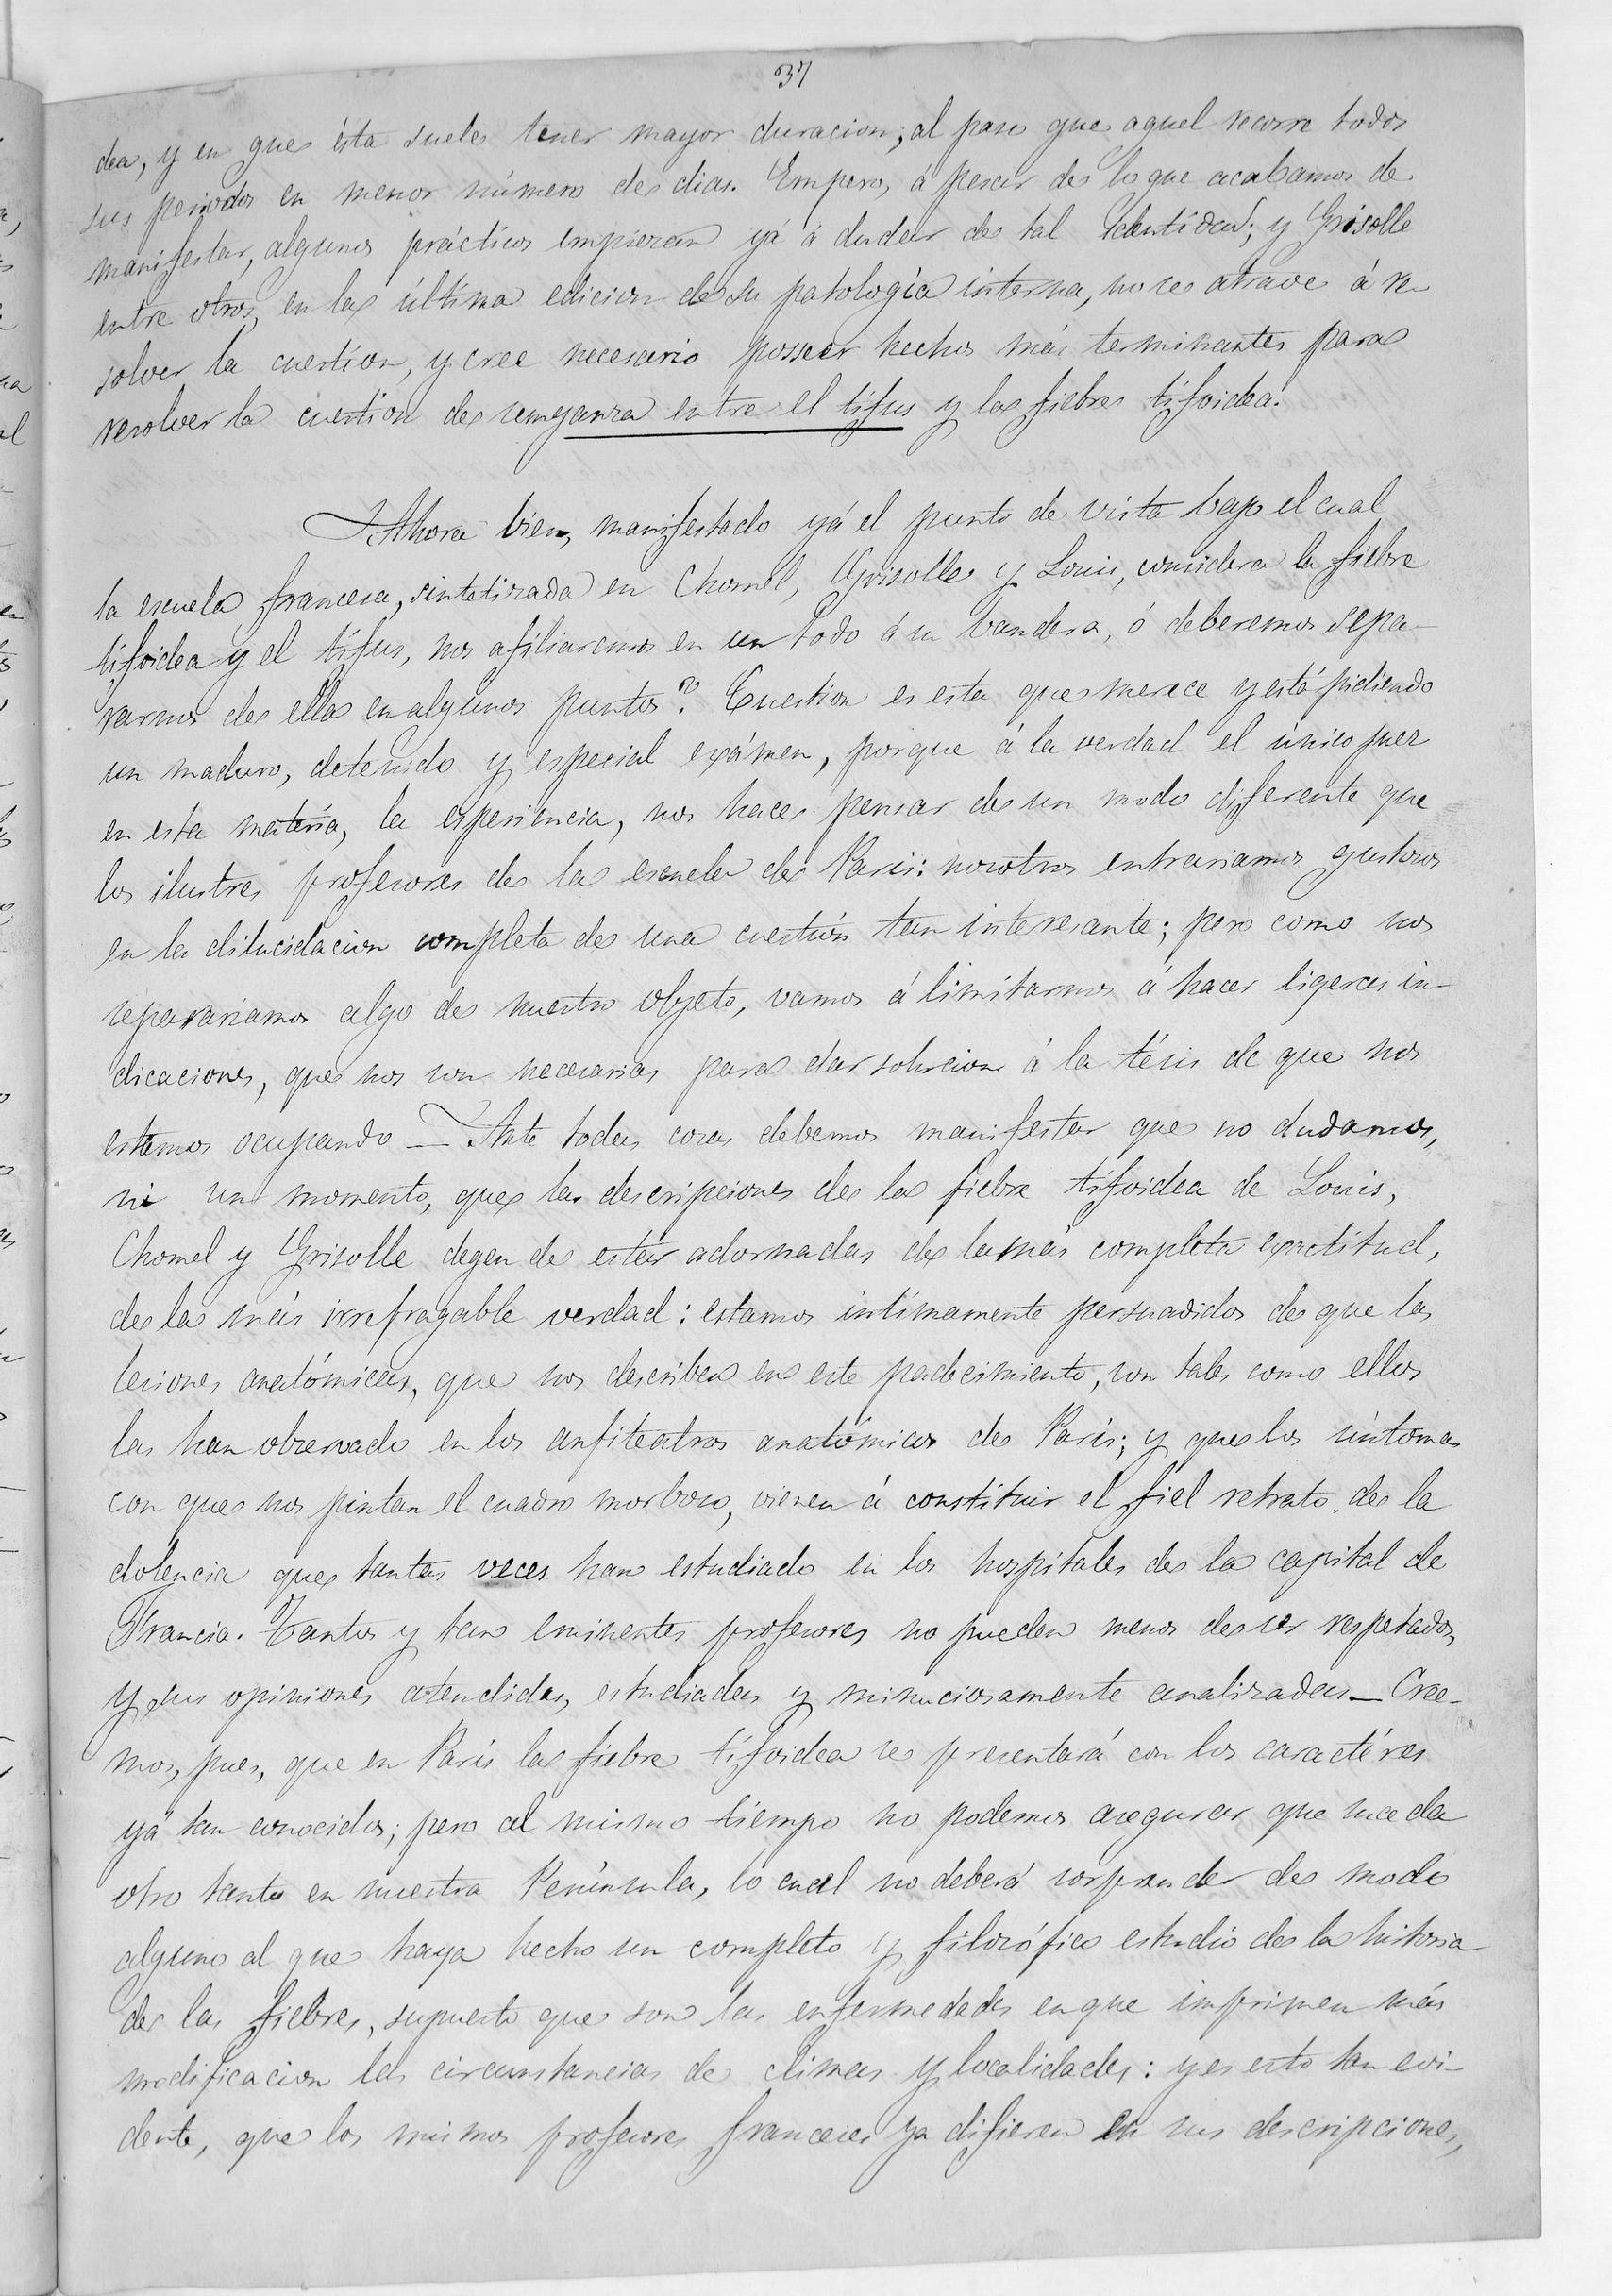 37
dea, y en que ésta suele tener mayor duracion; al paso que aquel recorre todos
sus periodos en menor número de dias. Empero, á pesar de lo que acabamos de
manifestar, algunos prácticos empiezan yá á dudar de tal identidad; y Grisolle
entre otros, en la última edicion de su patología interna, no se atreve á re
solver la cuestion, y cree necesario posseer hechos más terminantes para
resolver la cuestion de semejanza entre el tífus y la fiebre tifoidea.
Ahora bien, manifestado yá el punto de vista bajo el cual
la escuela francesa, sintetizada en Chomel, Grisolle y Louis, considera la fiebre
tifoidea y el tífus, nos afiliaremos en un todo á su bandera, ó deberemos sepa-
rarnos de ella en algunos puntos? Cuestion es esta que merece y está pidiendo
un maduro, detenido y especial exámen, porque á la verdad el único juez
en esta matéria, la esperiencia, nos hace pensar de un modo diferente que
los ilustres profesores de la escuela de Paris: nosotros entrariamos gustosos
en la dilucidacion completa de una cuestión tan interesante; pero como nos
separariamos algo de nuestro objeto, vamos á limitarnos á hacer ligeras in-
dicaciones, que nos son necesarias para dar solucion á la tésis de que nos
estamos ocupando — Ante todas cosas debemos manifestar que no dudamos,
ni un momento, que las descripciones de la fiebre tifoidea de Louis,
Chomel y Grisolle dejen de estar adornadas de la más completa exactitud,
de la más irrefragable verdad: estamos intímamente persuadidos de que las
lesiones anatómicas, que nos describen en este padecimiento, son tales como ellos
las han observado en los anfiteatros anatómicos de Paris; y que los síntomas
con que nos pintan el cuadro morboso, vienen á constituir el fiel retrato de la
dolencia que tantas veces han estudiado en los hospitales de la capital de
Francia. Tantos y tan eminentes profesores no pueden menos de ser respetados,
y sus opiniones atendidas, estudiadas y minuciosamente analizadas — Cree-
mos, pues, que en Paris la fiebre tifoidea se presentará con los caractéres
yá tan conocidos; pero al mismo tiempo no podemos asegurar que suceda
otro tanto en nuestra Península, lo cual no deberá sorprender de modo
alguno al que haya hecho un completo y filosófico estudio de la historia
de las fiebres, supuesto que son las enfermedades en que imprimen más
modificacion las circunstancias de climas y localidades: y es esto tan evi-
dente, que los mismos profesores franceses ya difieren en sus descripciones,